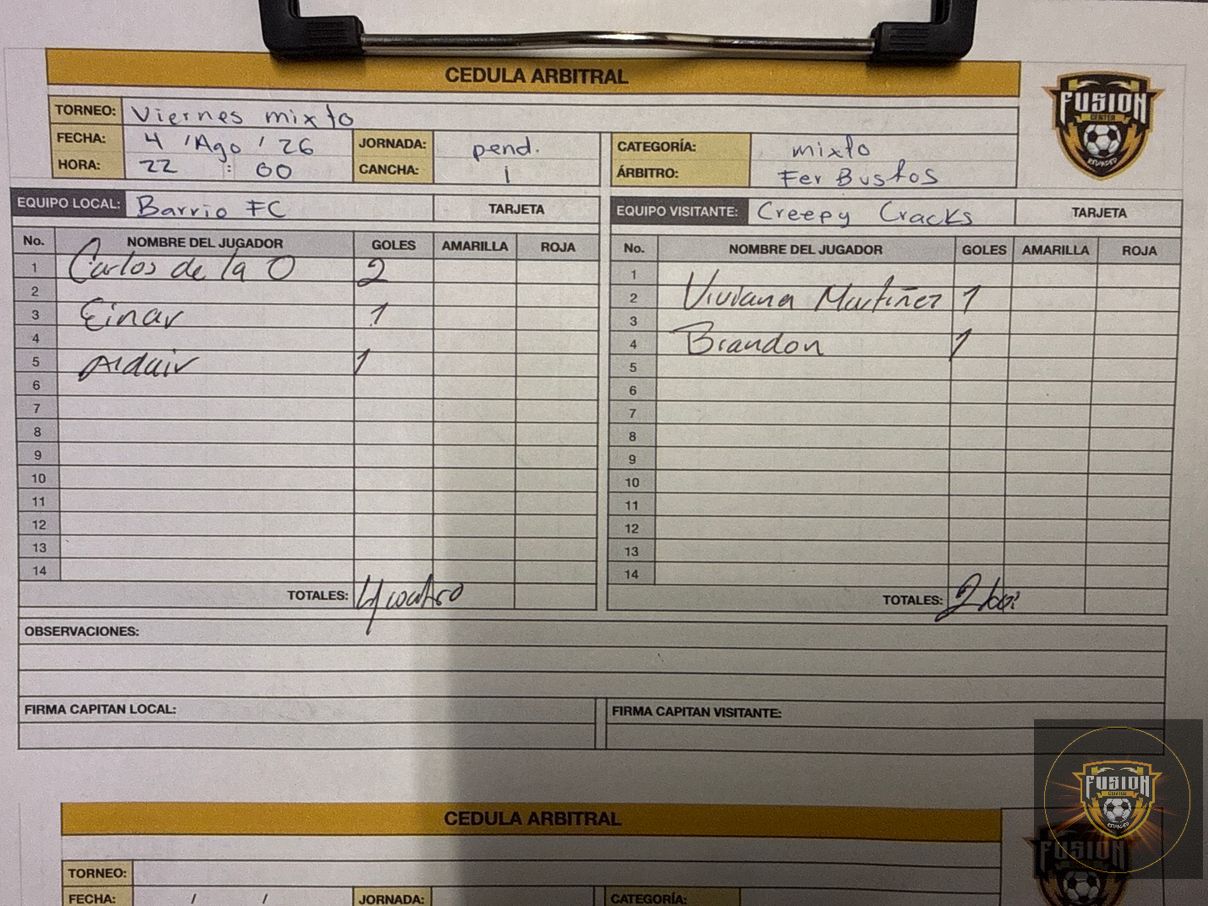 CEDULA ARBITRAL
FUSION
CENTER
RELOADED
TORNEO: Viernes mixto
FECHA: 4 / Ago / 26 JORNADA: pend. CATEGORÍA: mixto
HORA: 22 : 00 CANCHA: 1 ÁRBITRO: Fer Bustos
EQUIPO LOCAL: Barrio FC TARJETA EQUIPO VISITANTE: Creepy Cracks TARJETA
No. NOMBRE DEL JUGADOR GOLES AMARILLA ROJA No. NOMBRE DEL JUGADOR GOLES AMARILLA ROJA
1 Carlos de la O 2 1
2 2 Viviana Martiñez 1
3 Einar 1 3
4 4 Brandon 1
5 Aldair 1 5
6 6
7 7
8 8
9 9
10 10
11 11
12 12
13 13
14 14
TOTALES: 4 cuatro TOTALES: 2 dos
OBSERVACIONES:
FIRMA CAPITAN LOCAL: FIRMA CAPITAN VISITANTE:
FUSION
CENTER
RELOADED
CEDULA ARBITRAL
FUSION
TORNEO:
FECHA: / / JORNADA: CATEGORÍA: